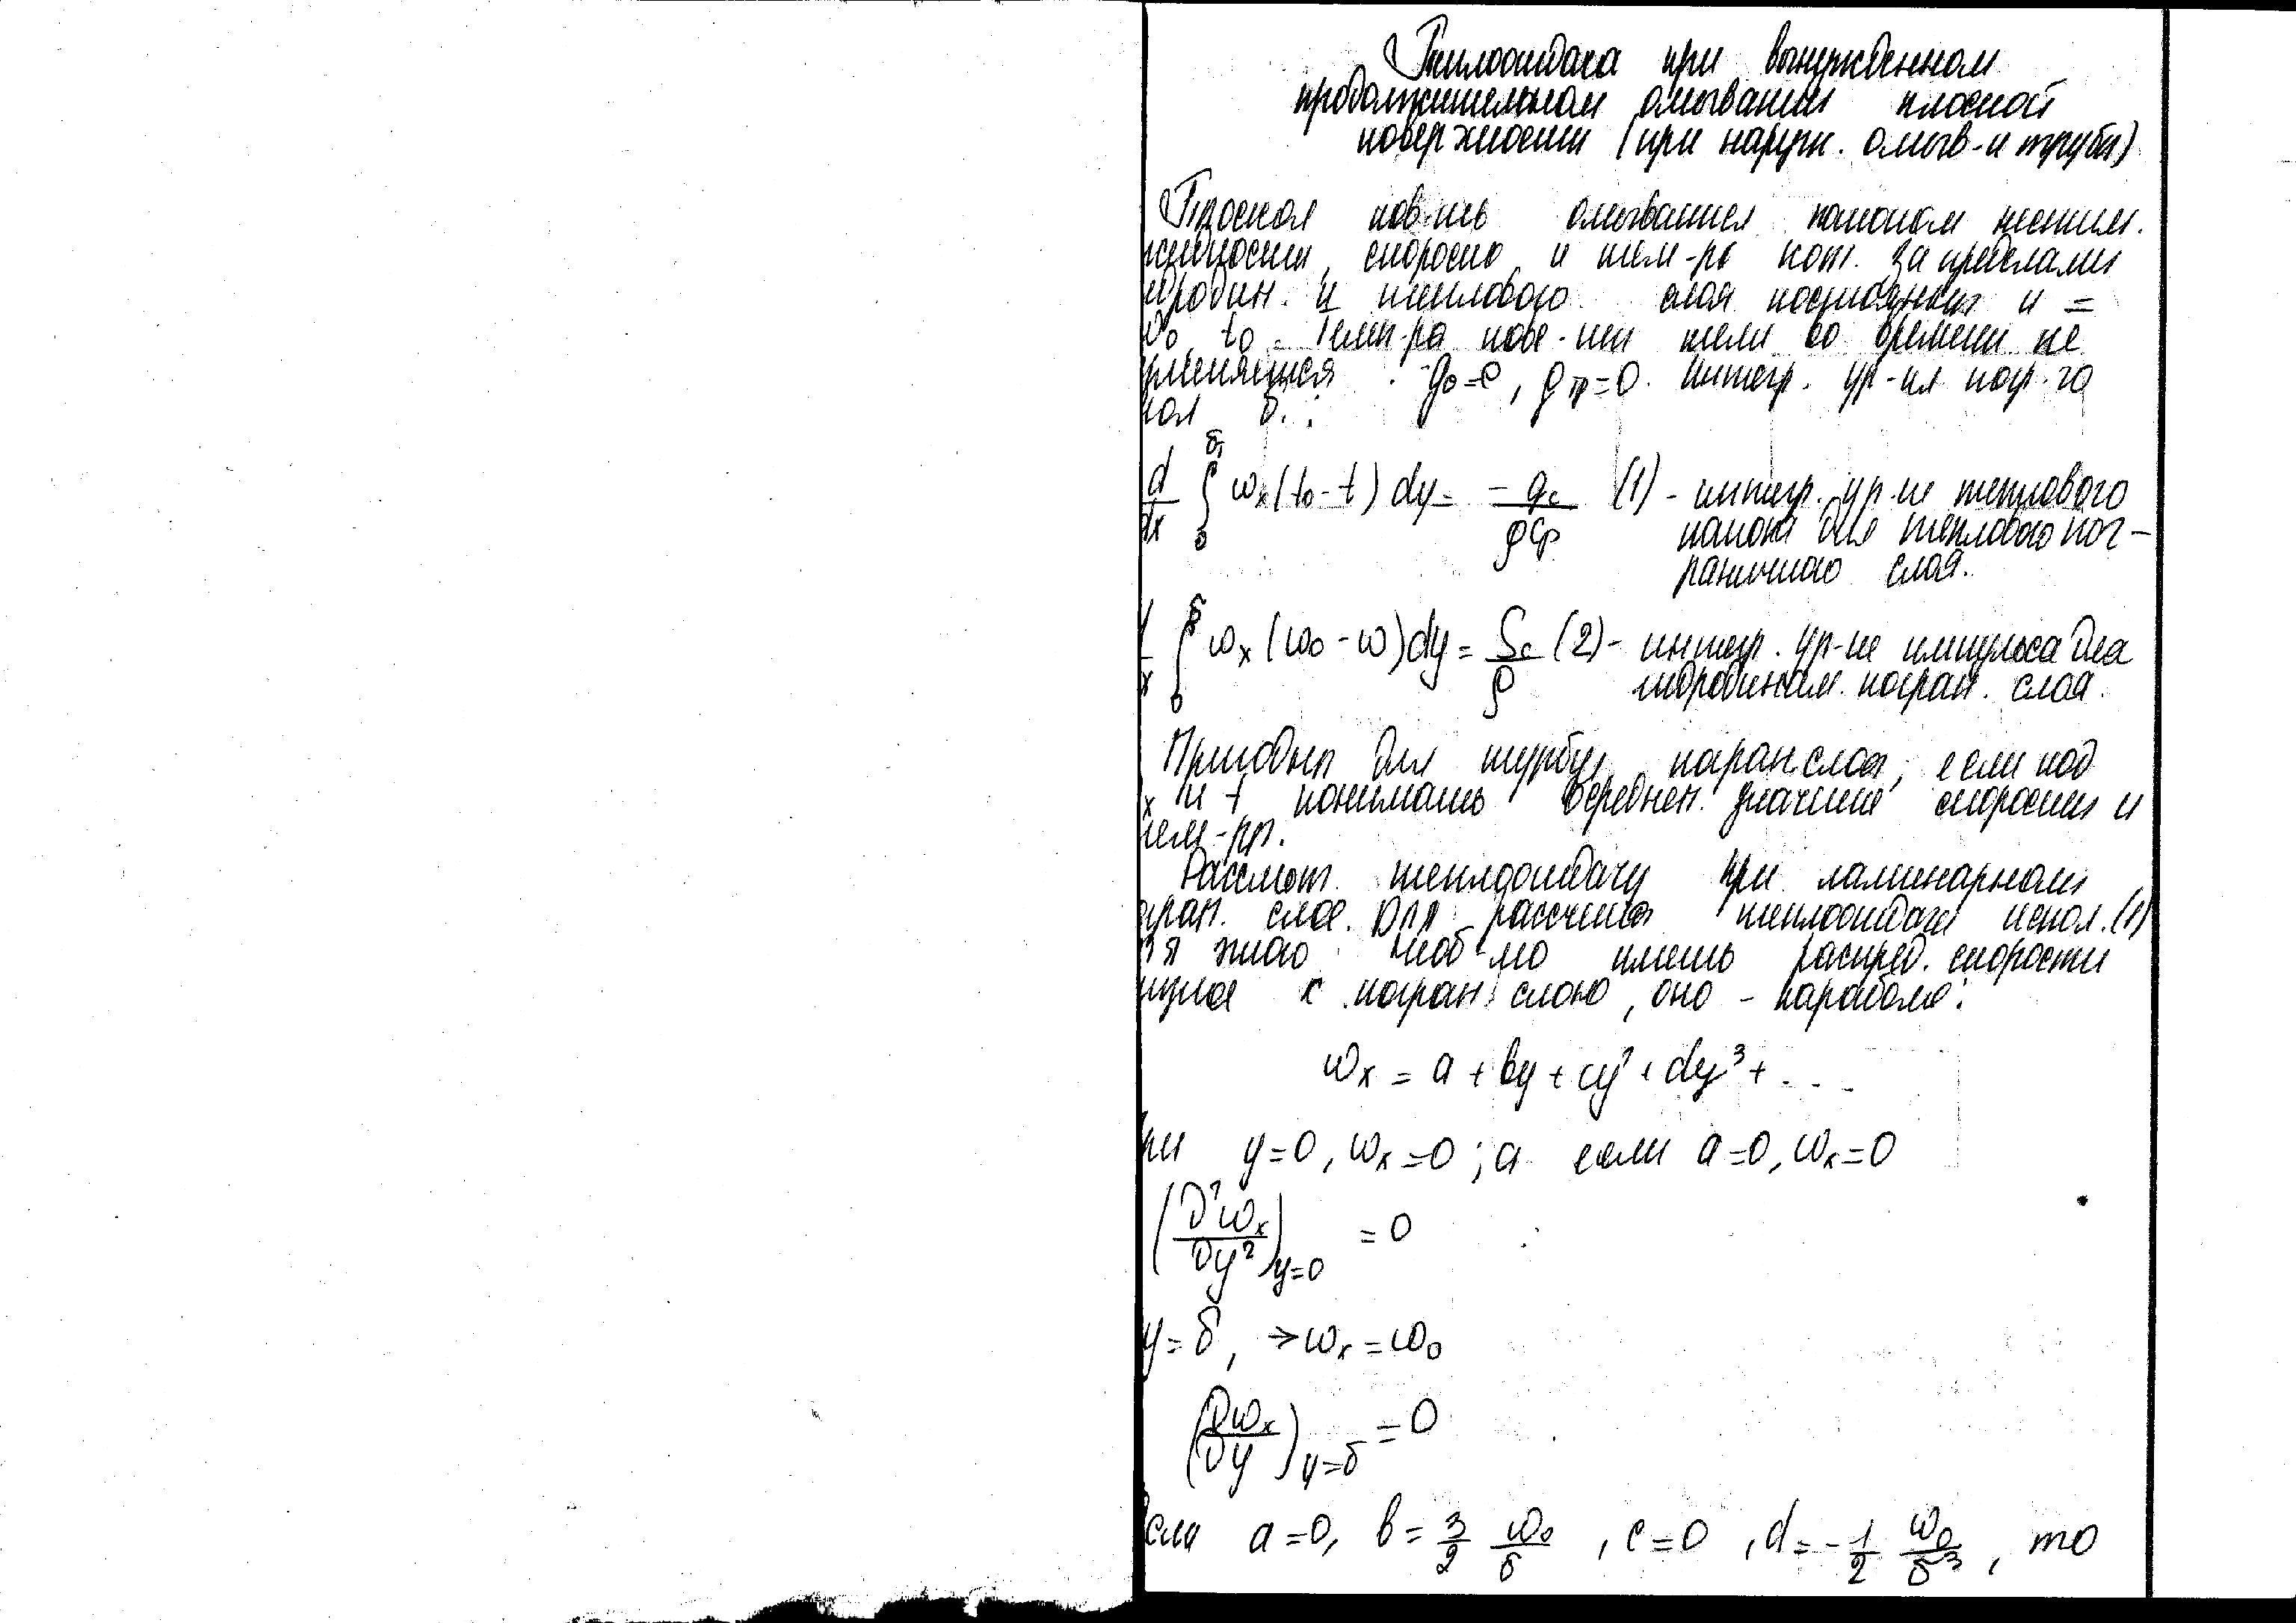 Теплоотдача при вынужденном
продолжительном омывании плоской
поверхности (при наружн. омыв-и трубы)
Плоская пов-ть омывается потоком несжим.
жидкости, скорость и тем-ра кот. за пределами
гидродин. и теплового слоя постоянны и =
w₀, t₀. Темп-ра пов-ти тела во времени не
изменяется. g₀=0, q_v=0. Интегр. ур-ия погр-го
слоя
d/dx ∫₀^δт wₓ(t₀-t) dy = -q_c/ρCp (1) - интегр. ур-ие теплового
потока для теплового пог-
раничного слоя.
∫₀^δ wₓ(w₀-w)dy = S_c/ρ (2) - интегр. ур-ие импульса для
гидродинам. погран. слоя.
Пригодны для турбул. погран. слоя, если под
x и t понимать осреднен. значение скорости и
тем-ры.
Рассмот. теплоотдачу при ламинарном
гран. слое. Для рассчета теплоотдачи испол. (1)
для этого необ-мо иметь распред. скорости
к погран. слою, оно - парабола:
wₓ = a + bу + cy² + dy³ + ...
ри y=0, wₓ=0; а если a=0, wₓ=0
(∂²wₓ/∂y²)y=0 = 0
y=δ, → wₓ=w₀
(∂wₓ/∂y)y=δ = 0
если a=0, b = 3/2 w₀/δ, c=0, d = -1/2 w₀/δ³, то